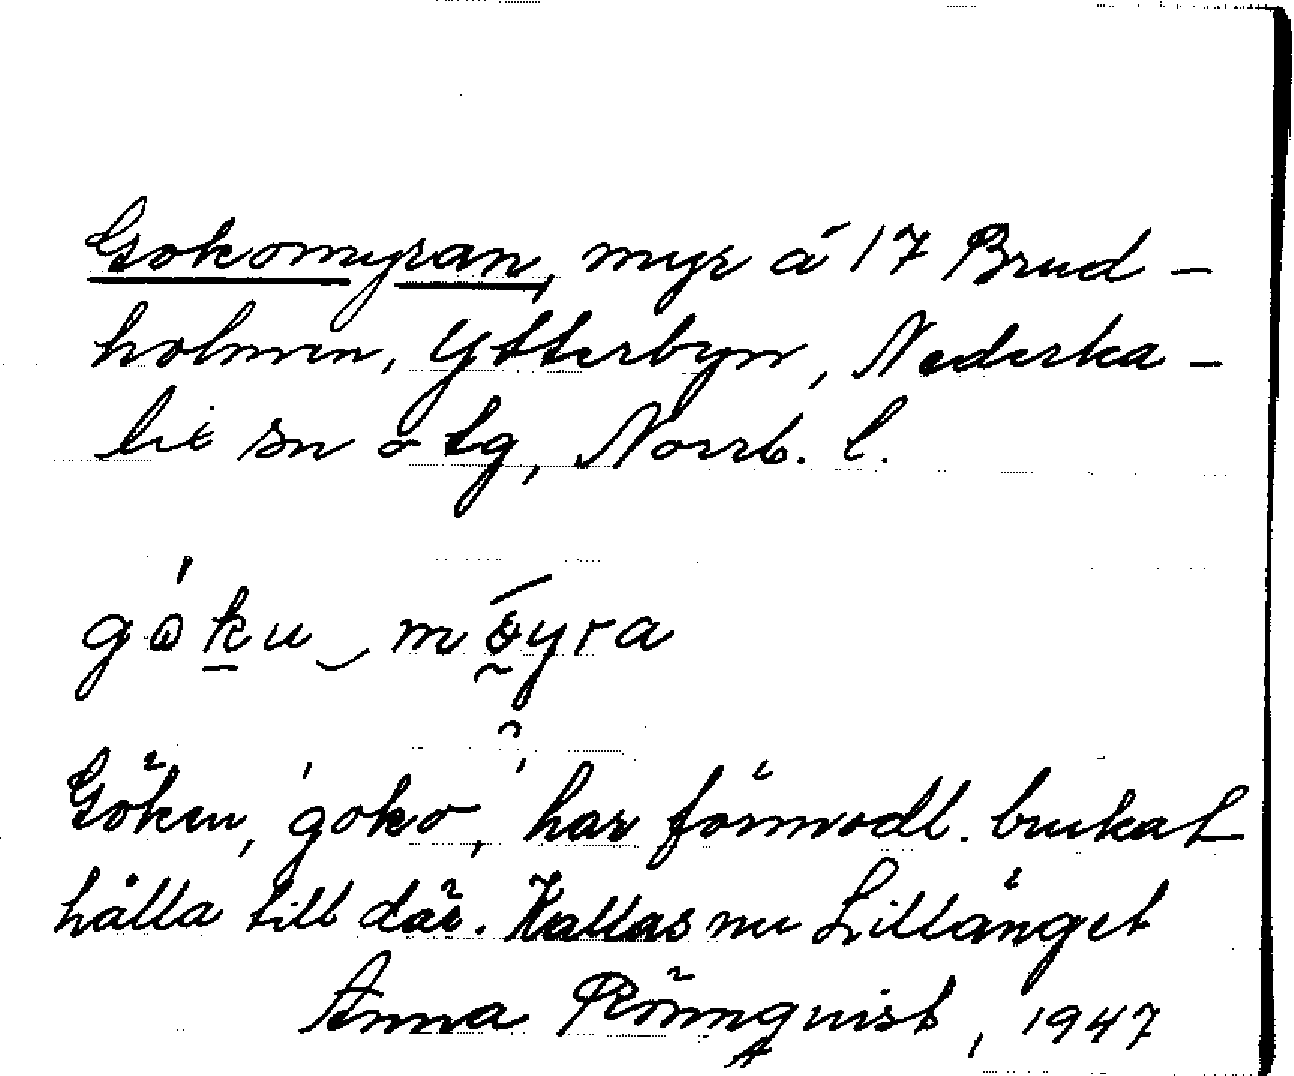 Gokomyran, myr å 17 Brud-
holmen, Ytterbyn, Nederka-
lix sn o tg, Norrb. l.
Göken, 'goko', har förmodl. brukat
hålla till där. Kallas nu Lillänget
Anna Rönnquist, 1947